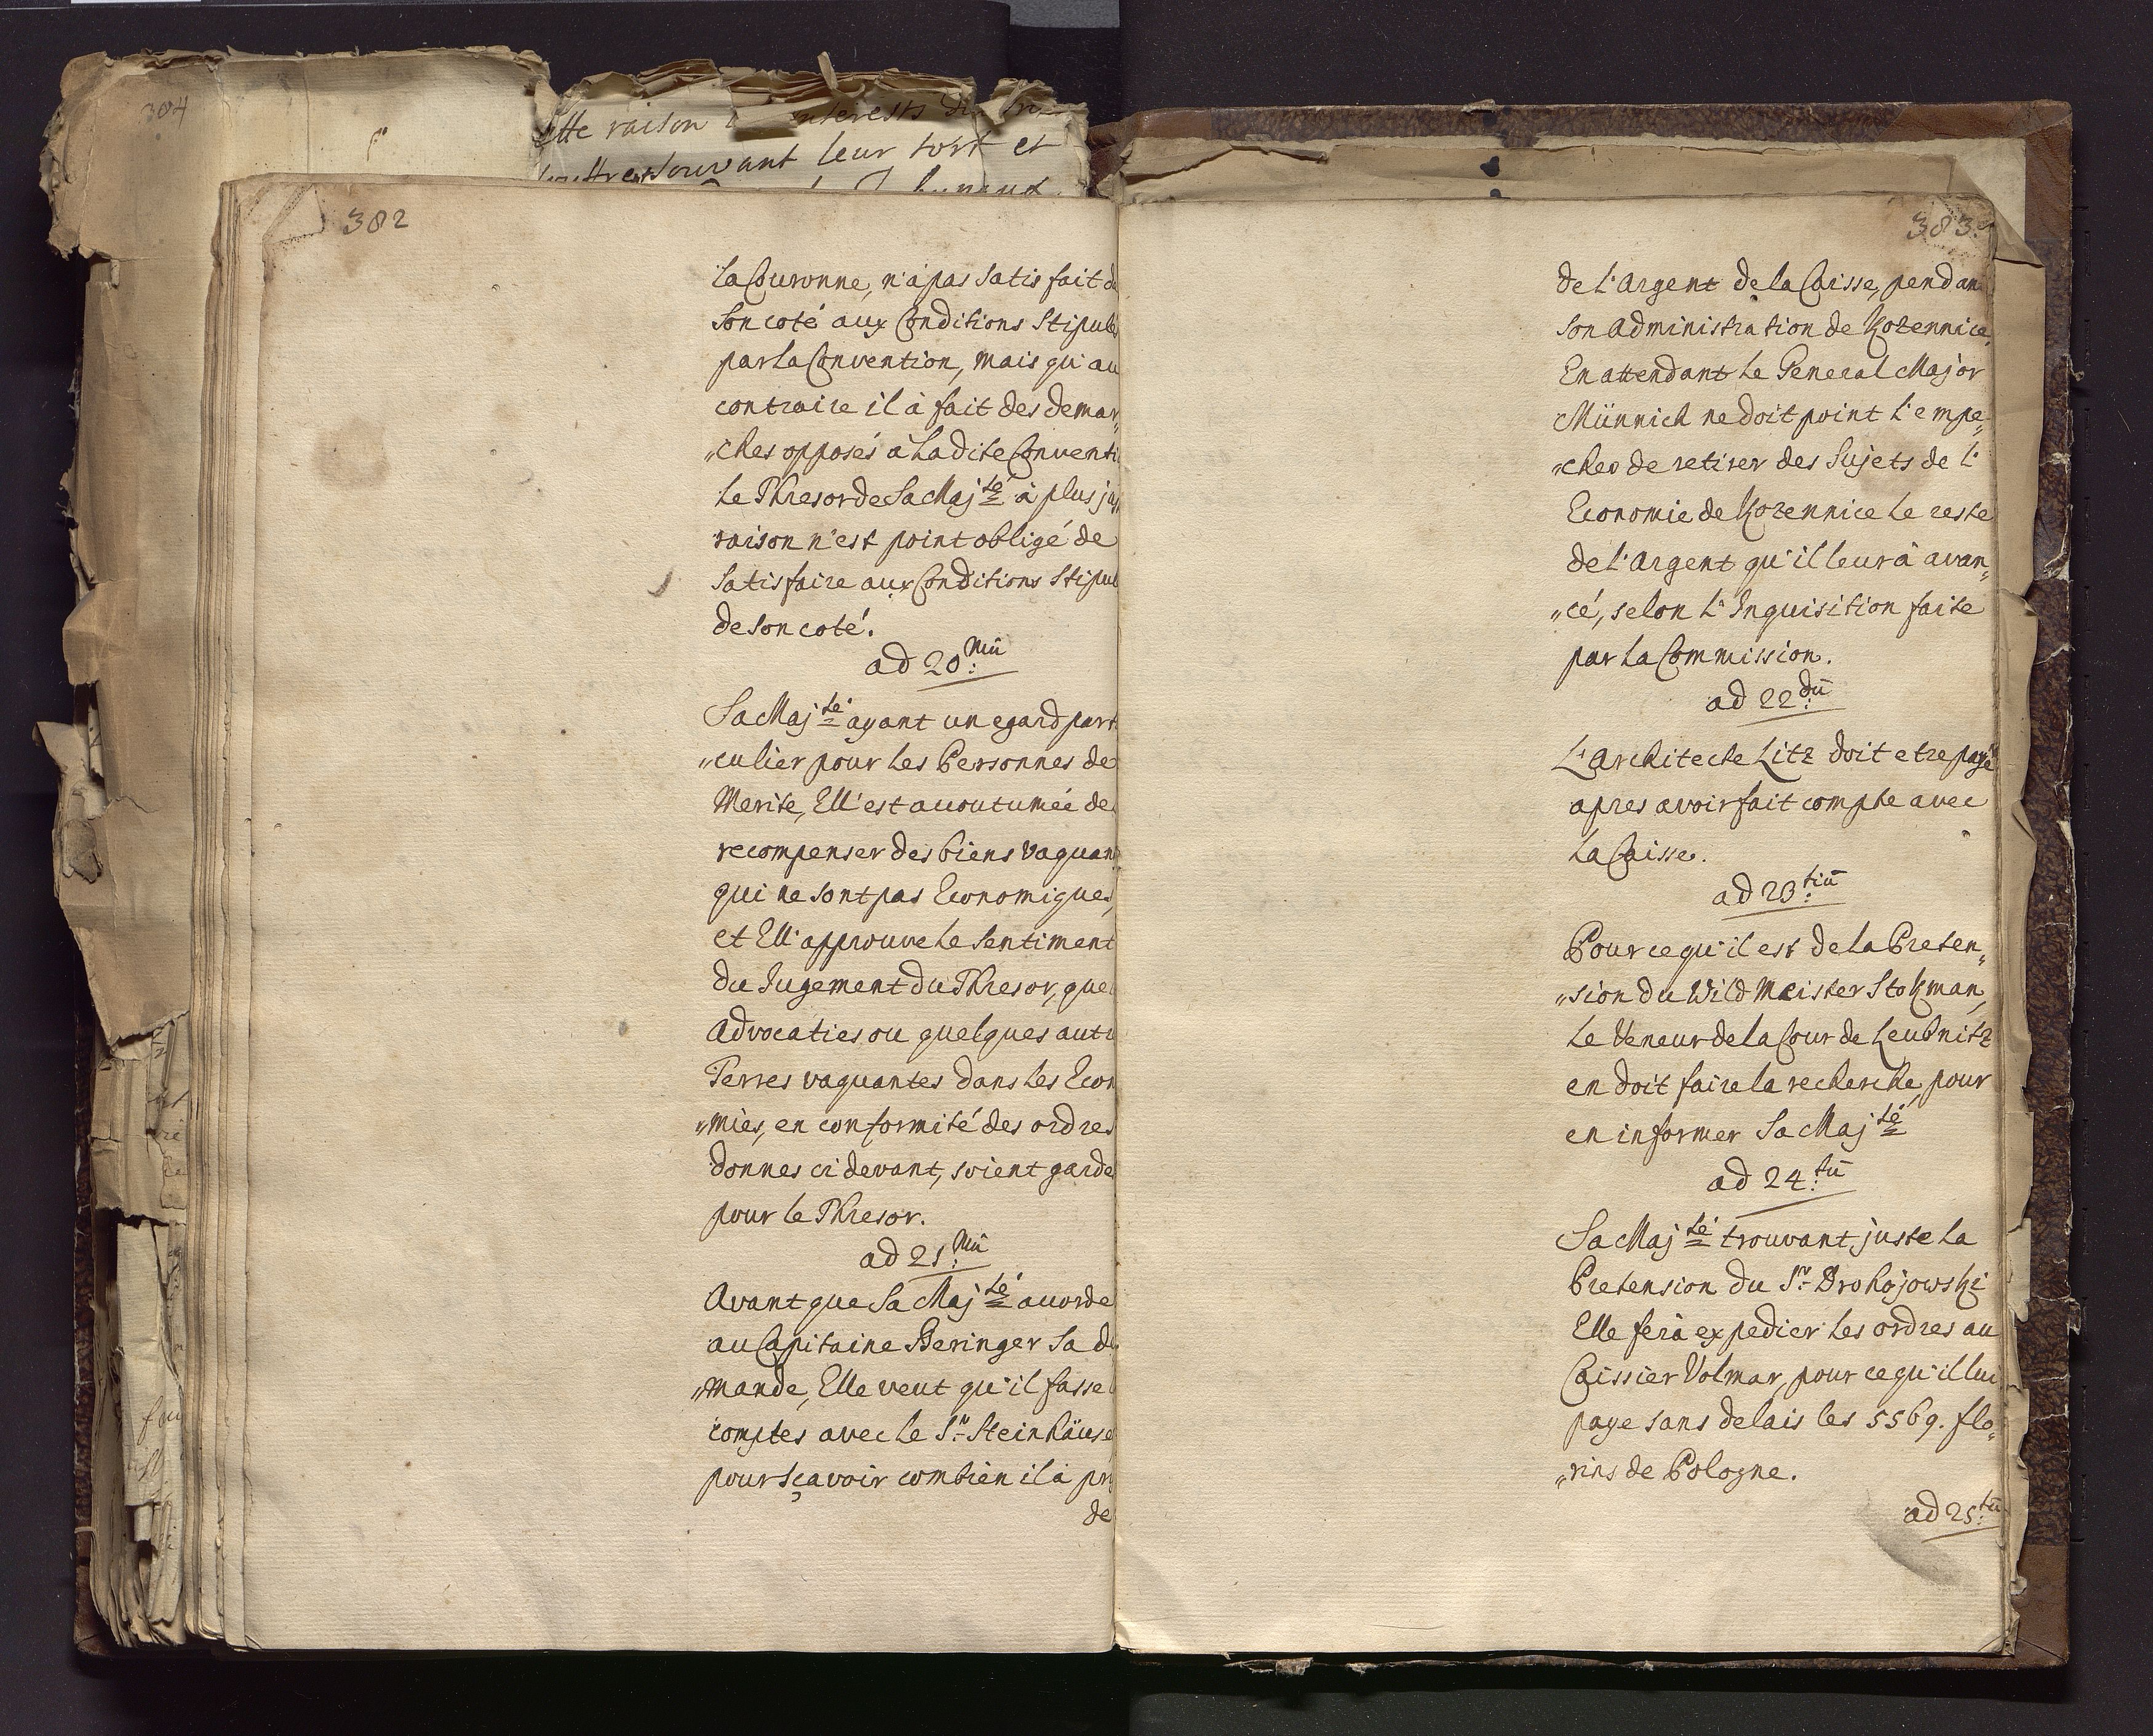 304
interests
leur tort et
382
la Couronne, n'à pas Satisfait de
Son coté aux Conditions Stipulé
par la Convention, mais qu'au
contraire il à fait des demar„
„ches opposés à ladite Conventi
le Thresor de Sa Maj.té à plus jus
raison n'est point obligé de
Satisfaire aux Conditions Stipul
de Son coté.
ad 20:mū
Sa Maj.té ayant un egard parti
„culier pour les Personnes de
Merite, Ell'est accoutumée de
recompenser des biens vaquan
qui ne sont pas Economiques,
et Ell'approuve le Sentiment
du Jugement du Thresor, que
Advocaties ou quelques autr
Terres vaquantes dans les Econ
„mies, en conformité des ordres
donnes ci devant, soient garde
pour le Thresor.
ad 21:mū
Avant que Sa Maj.té accorde
au Capitaine Beringer Sa de
„mande, Elle veut qu'il fasse
comptes avec le Sr. Steinhäuse
pour sçavoir combien il à pri
de
383.
de l'Argent de la Caisse, pendan
Son Administration de Kozennice,
En attendant le General Major
Münnich ne doit point l'empe„
„cher de retirer des Sujets de l'
Economie de Kozennice le reste
de l'Argent qu'il leur à avan„
„cé, selon l'Inquisition faite
par la Commission.
ad 22:dū
L'Architecte Litz doit etre payé
apres avoir fait compte avec
la Caisse.
ad 23:tiū
Pour ce qu'il est de la Preten„
„sion du Wild Meister Stokman,
le Veneur de la Cour de Leubnitz
en doit faire la recherche, pour
en informer Sa Maj.té
ad 24:tū
Sa Maj.té trouvant juste la
Pretension du Sr. Drohojowski
Elle ferà expedier les ordres au
Caissier Volmar, pour ce qu'il lui
paye sans delais les 5569. flo„
„rins de Pologne.
ad 25:tū